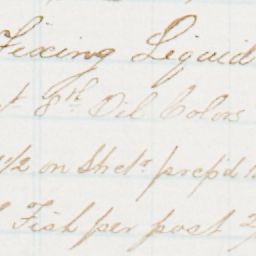 Fixing Liquid
Oil Colors
1/2 on Shets prepd
Fish per post